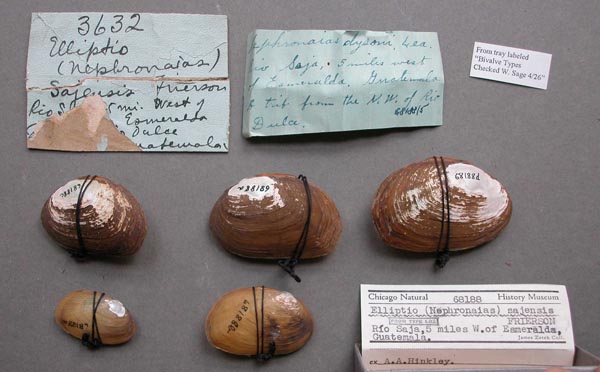 3632
Elliptio
(Nephronaias)
Sajensis Frierson
Rio Saja 5 mi. West of
Esmeralda
Dulce
Guatemala
Nephronaias dysoni, Lea.
Rio Saja, 5 miles west
of Esmeralda, Guatemala
A trib. from the N.W. of Rio
Dulce.
From tray labeled
"Bivalve Types
Checked W. Sage 4/26"
68188
68188
Chicago Natural 68188 History Museum
Elliptio (Nephronaias) sajensis
FRIERSON
Río Saja, 5 miles W. of Esmeralda,
Guatemala.
James Zetek Coll.
ex A.A.Hinkley.